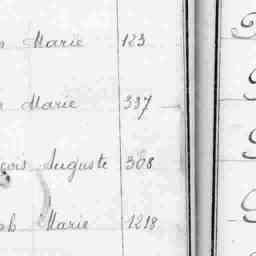 Marie 123
Marie 337
Auguste 308
Marie 1218